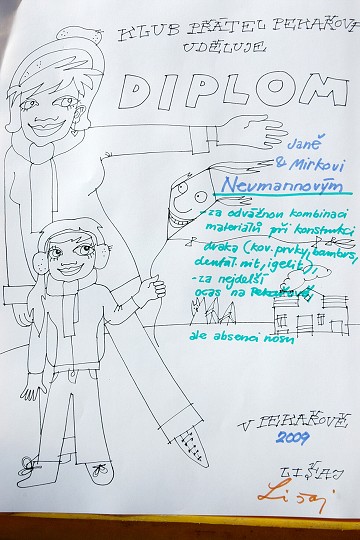 KLUB PŘÁTEL PEKAŘOVA
UDĚLUJE
DIPLOM
Janě
& Mirkovi
Neumannovým
- za odvážnou kombinaci
materiálů při konstrukci
draka (kov. prvky, bambus,
dentál. nit, igelit),
- za nejdelší
ocas na Pekařově
ale absenci nosu
V PEKAŘOVĚ
2009
LIŠAJ
Lišaj